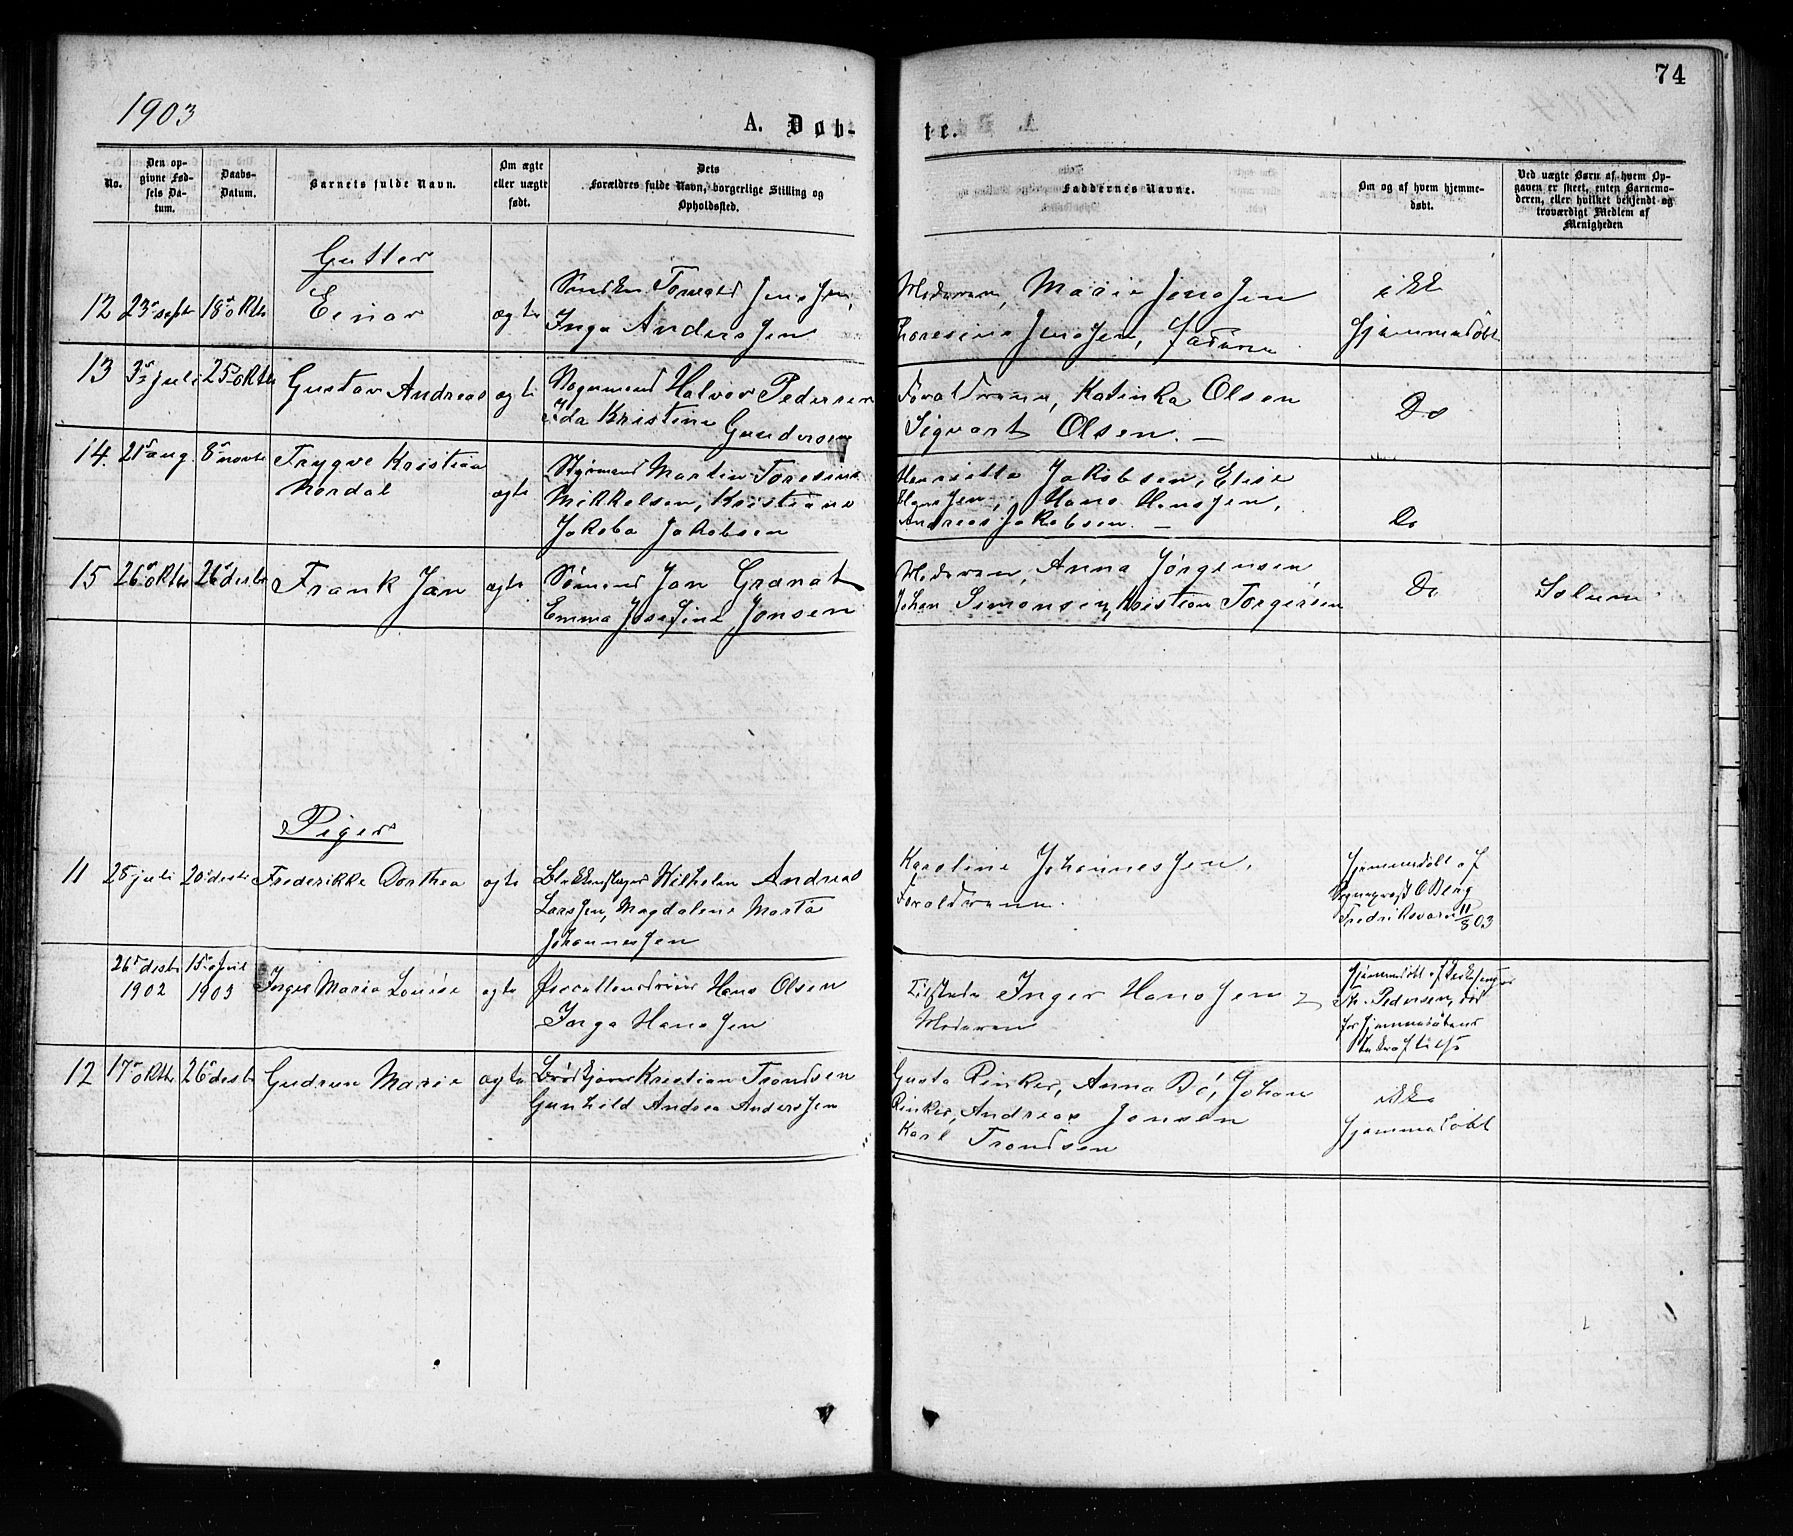 74
1903
A. Døb-
te.
No.
Den op-
givne Fød-
sels Da-
tum.
Daabs-
Datum.
Barnets fulde Navn.
Om ægte
eller uægte
født.
Dets
Forældres fulde Navn, borgerlige Stilling og
Opholdssted.
Faddernes Navne.
Om og af hvem hjemme-
døbt.
Ved uægte Børn af hvem Op-
gaven er skeet, enten Barnemo-
deren, eller hvilket bekjendt og
troværdigt Medlem af
Menigheden
Gutter
12 23 septr 18 oktbr Einar ægte
Jensen,
Inga Anderssen
Moderen, Marie Jenssen
Jenssen, faderen
ikke
hjemmedøbt
13 3 juli 25 oktbr Gustav Andreas ægte
Halvor Pedersen
Ida Kristine Gundersen
Forældrene, Katinka Olsen
Sigvart Olsen. —
Do
14. 21 aug. 8 novbr Trygve Kristian
Nordal
ægte
Styrmand Martin
Mikkelsen, Kristiane
Jakoba Jakobsen
Henriette Jakobsen, Elise
Hanssen, Hans Hanssen,
Andreas Jakobsen. —
Do
15 26 oktbr 26 desbr Frank Jan ægte
Sømand Jan Granat
Emma Josefine Jonsen
Moderen, Anna Jørgensen
Johan Simonsen, Kristian Torgersen
Do
Solum
Piger
11 25 juli 20 desbr Frederikke Dorthea ægte
Blikkenslager Wilhelm Andreas
Larssen, Magdalene Marta
Johannessen
Karoline Johannessen,
Forældrene.
Hjemmedøbt af
Sogneprest O Berg
Fredriksværn 11/8 03
26 desbr
1902
15 april
1903
Inger Maria Louise ægte
Hans Olsen
Inga Hanssen
Tilstede Inger Hanssen
Moderen
Hjemmedøbt af
Pedersen, død
før hjemmedåbens
12 17 oktbr 26 desbr Gudrun Marie ægte
Kristian Trondsen
Gunhild Andrea Anderssen
Gusta Rinker, Anna Do, Johan
Rinker, Andreas Jensen
Karl Trondsen
ikke
hjemmedøbt